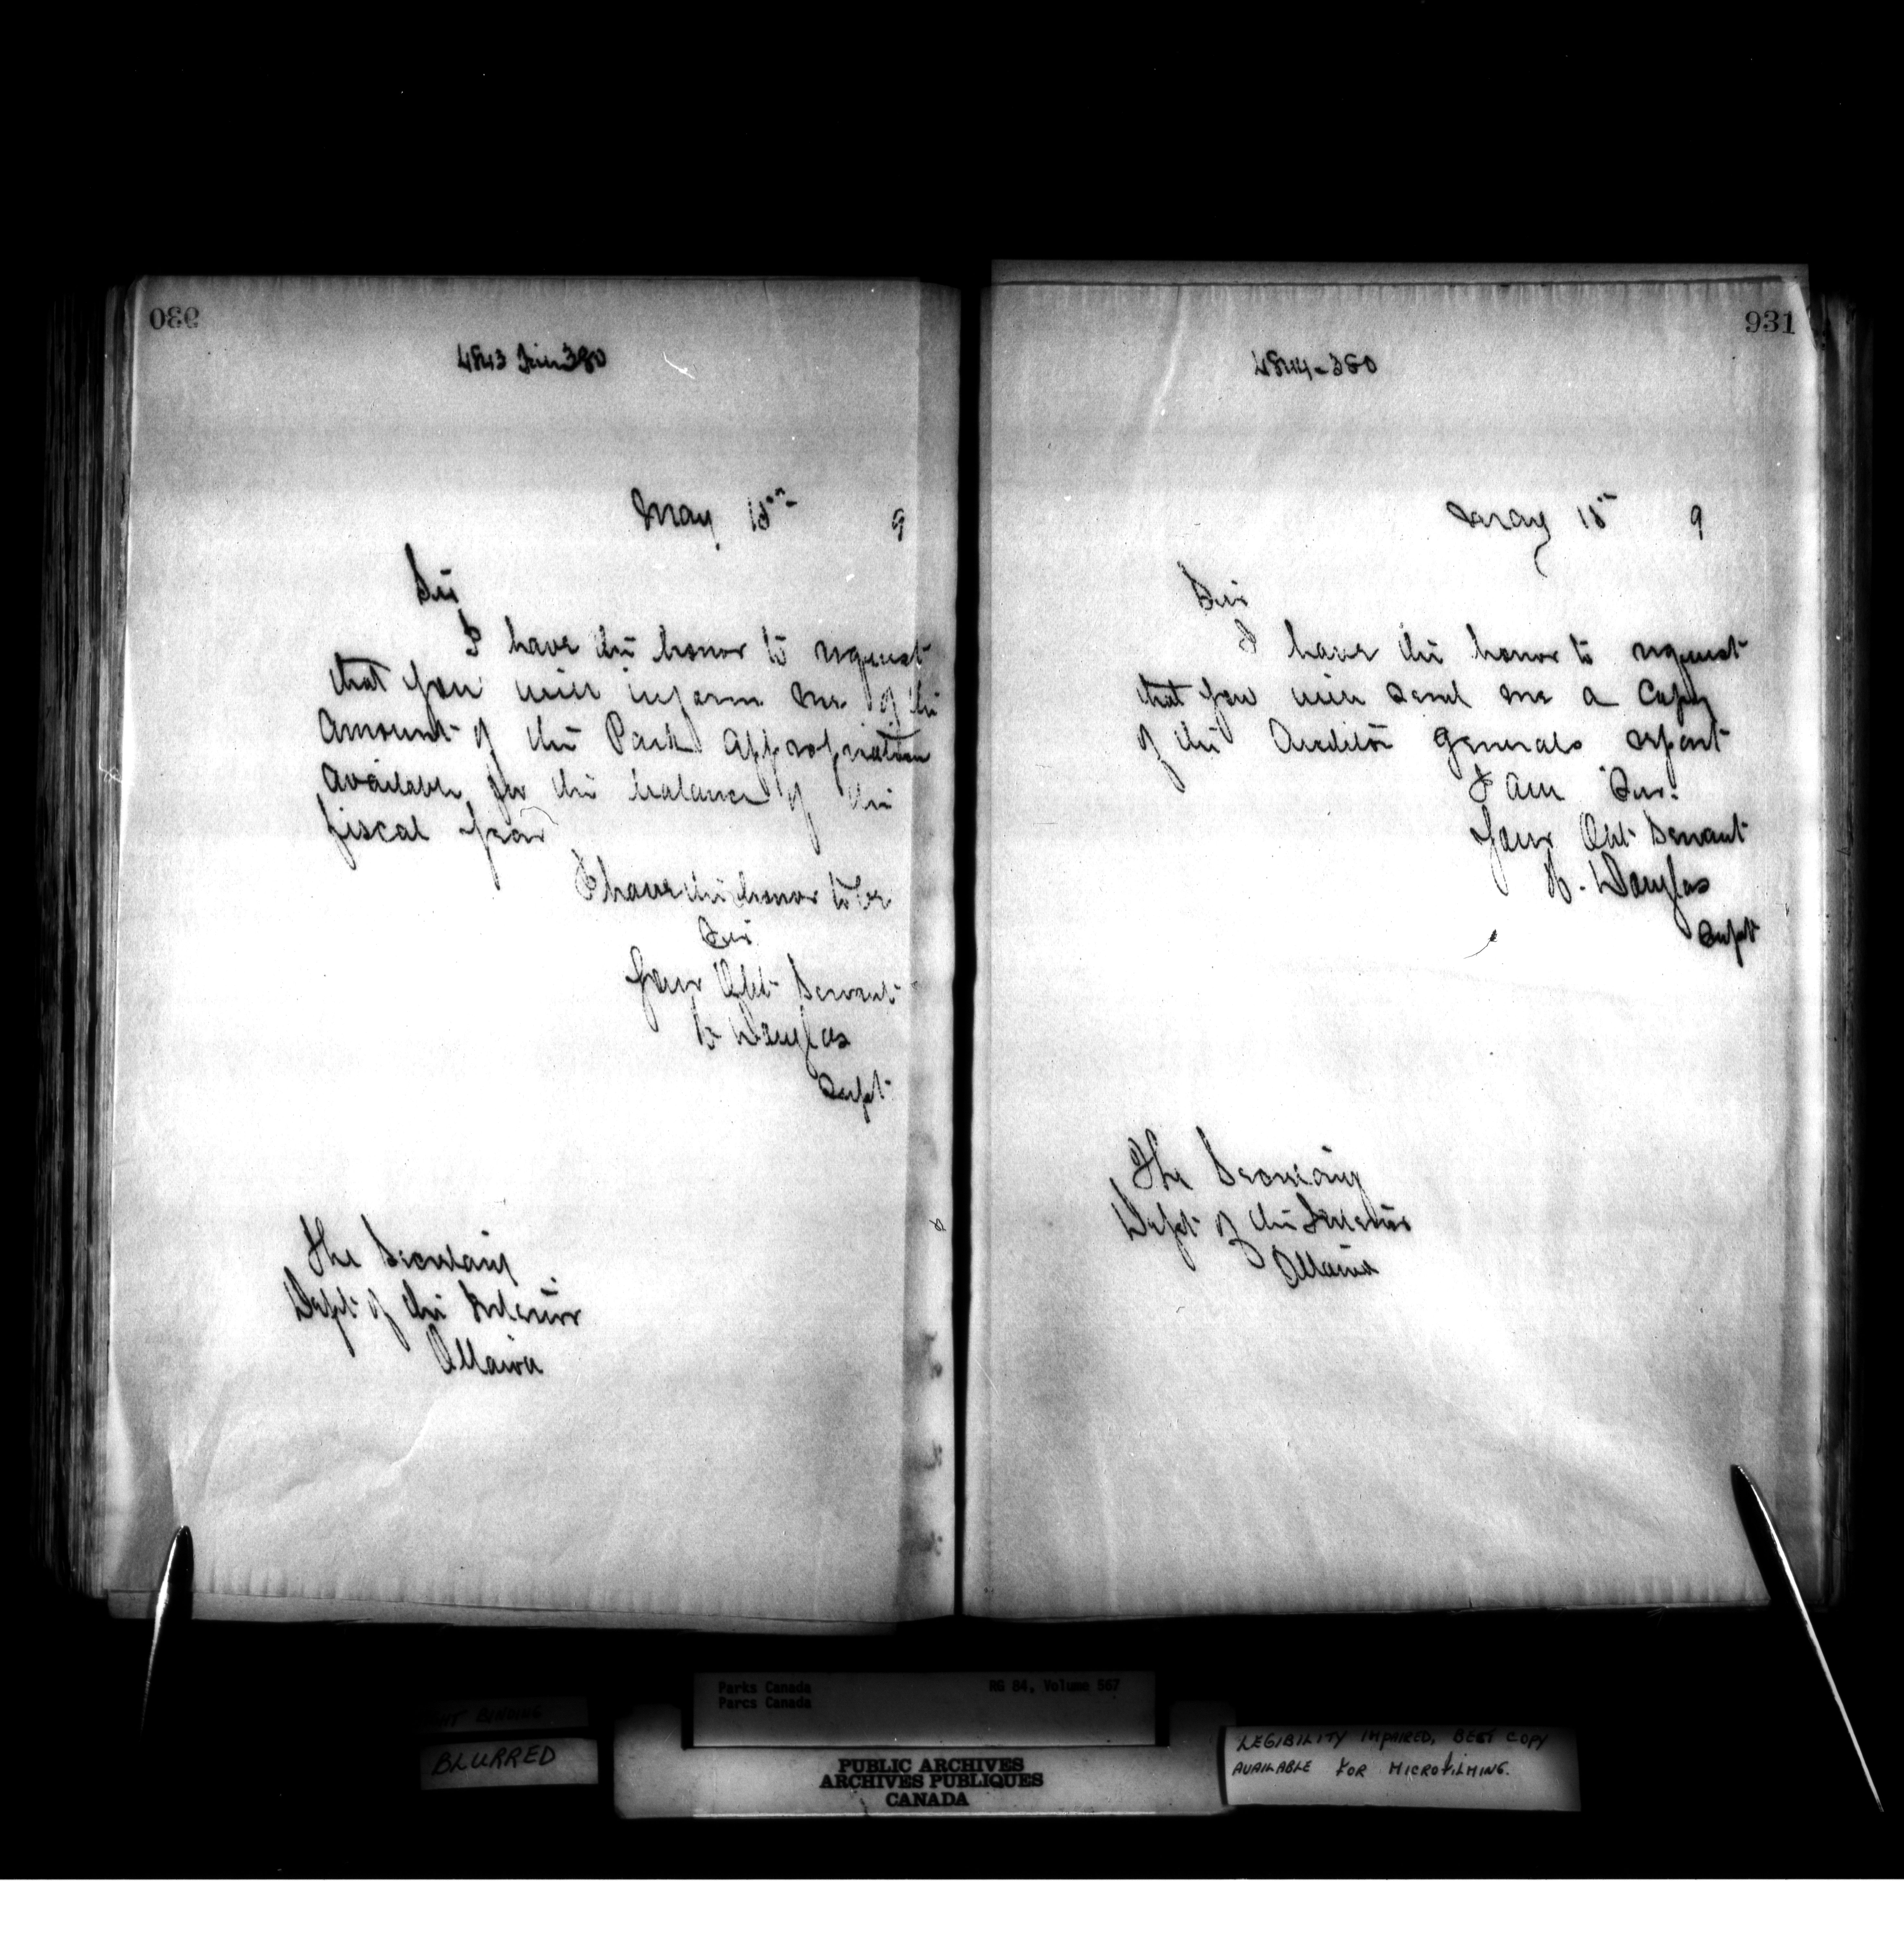 930
4843 380
May 18th 9
Sir
I have the honor to request
that you will inform me of the
amount of the Park appropriation
available for the balance of the
fiscal year
I have the honor to be
Sir
Your Obt Servant
H Douglas
Supt
The Secretary
Dept of the Interior
Ottawa
931
4844-380
May 18th 9
Sir
I have the honor to request
that you will send me a copy
of the Auditor Generals report
I am Sir.
Your Obt Servant
H. Douglas
Supt
The Secretary
Dept of the Interior
Ottawa
BINDING
BLURRED
Parks Canada RG 84, Volume 567
Parcs Canada
PUBLIC ARCHIVES
ARCHIVES PUBLIQUES
CANADA
LEGIBILITY IMPAIRED, BEST COPY
AVAILABLE FOR MICROFILMING.